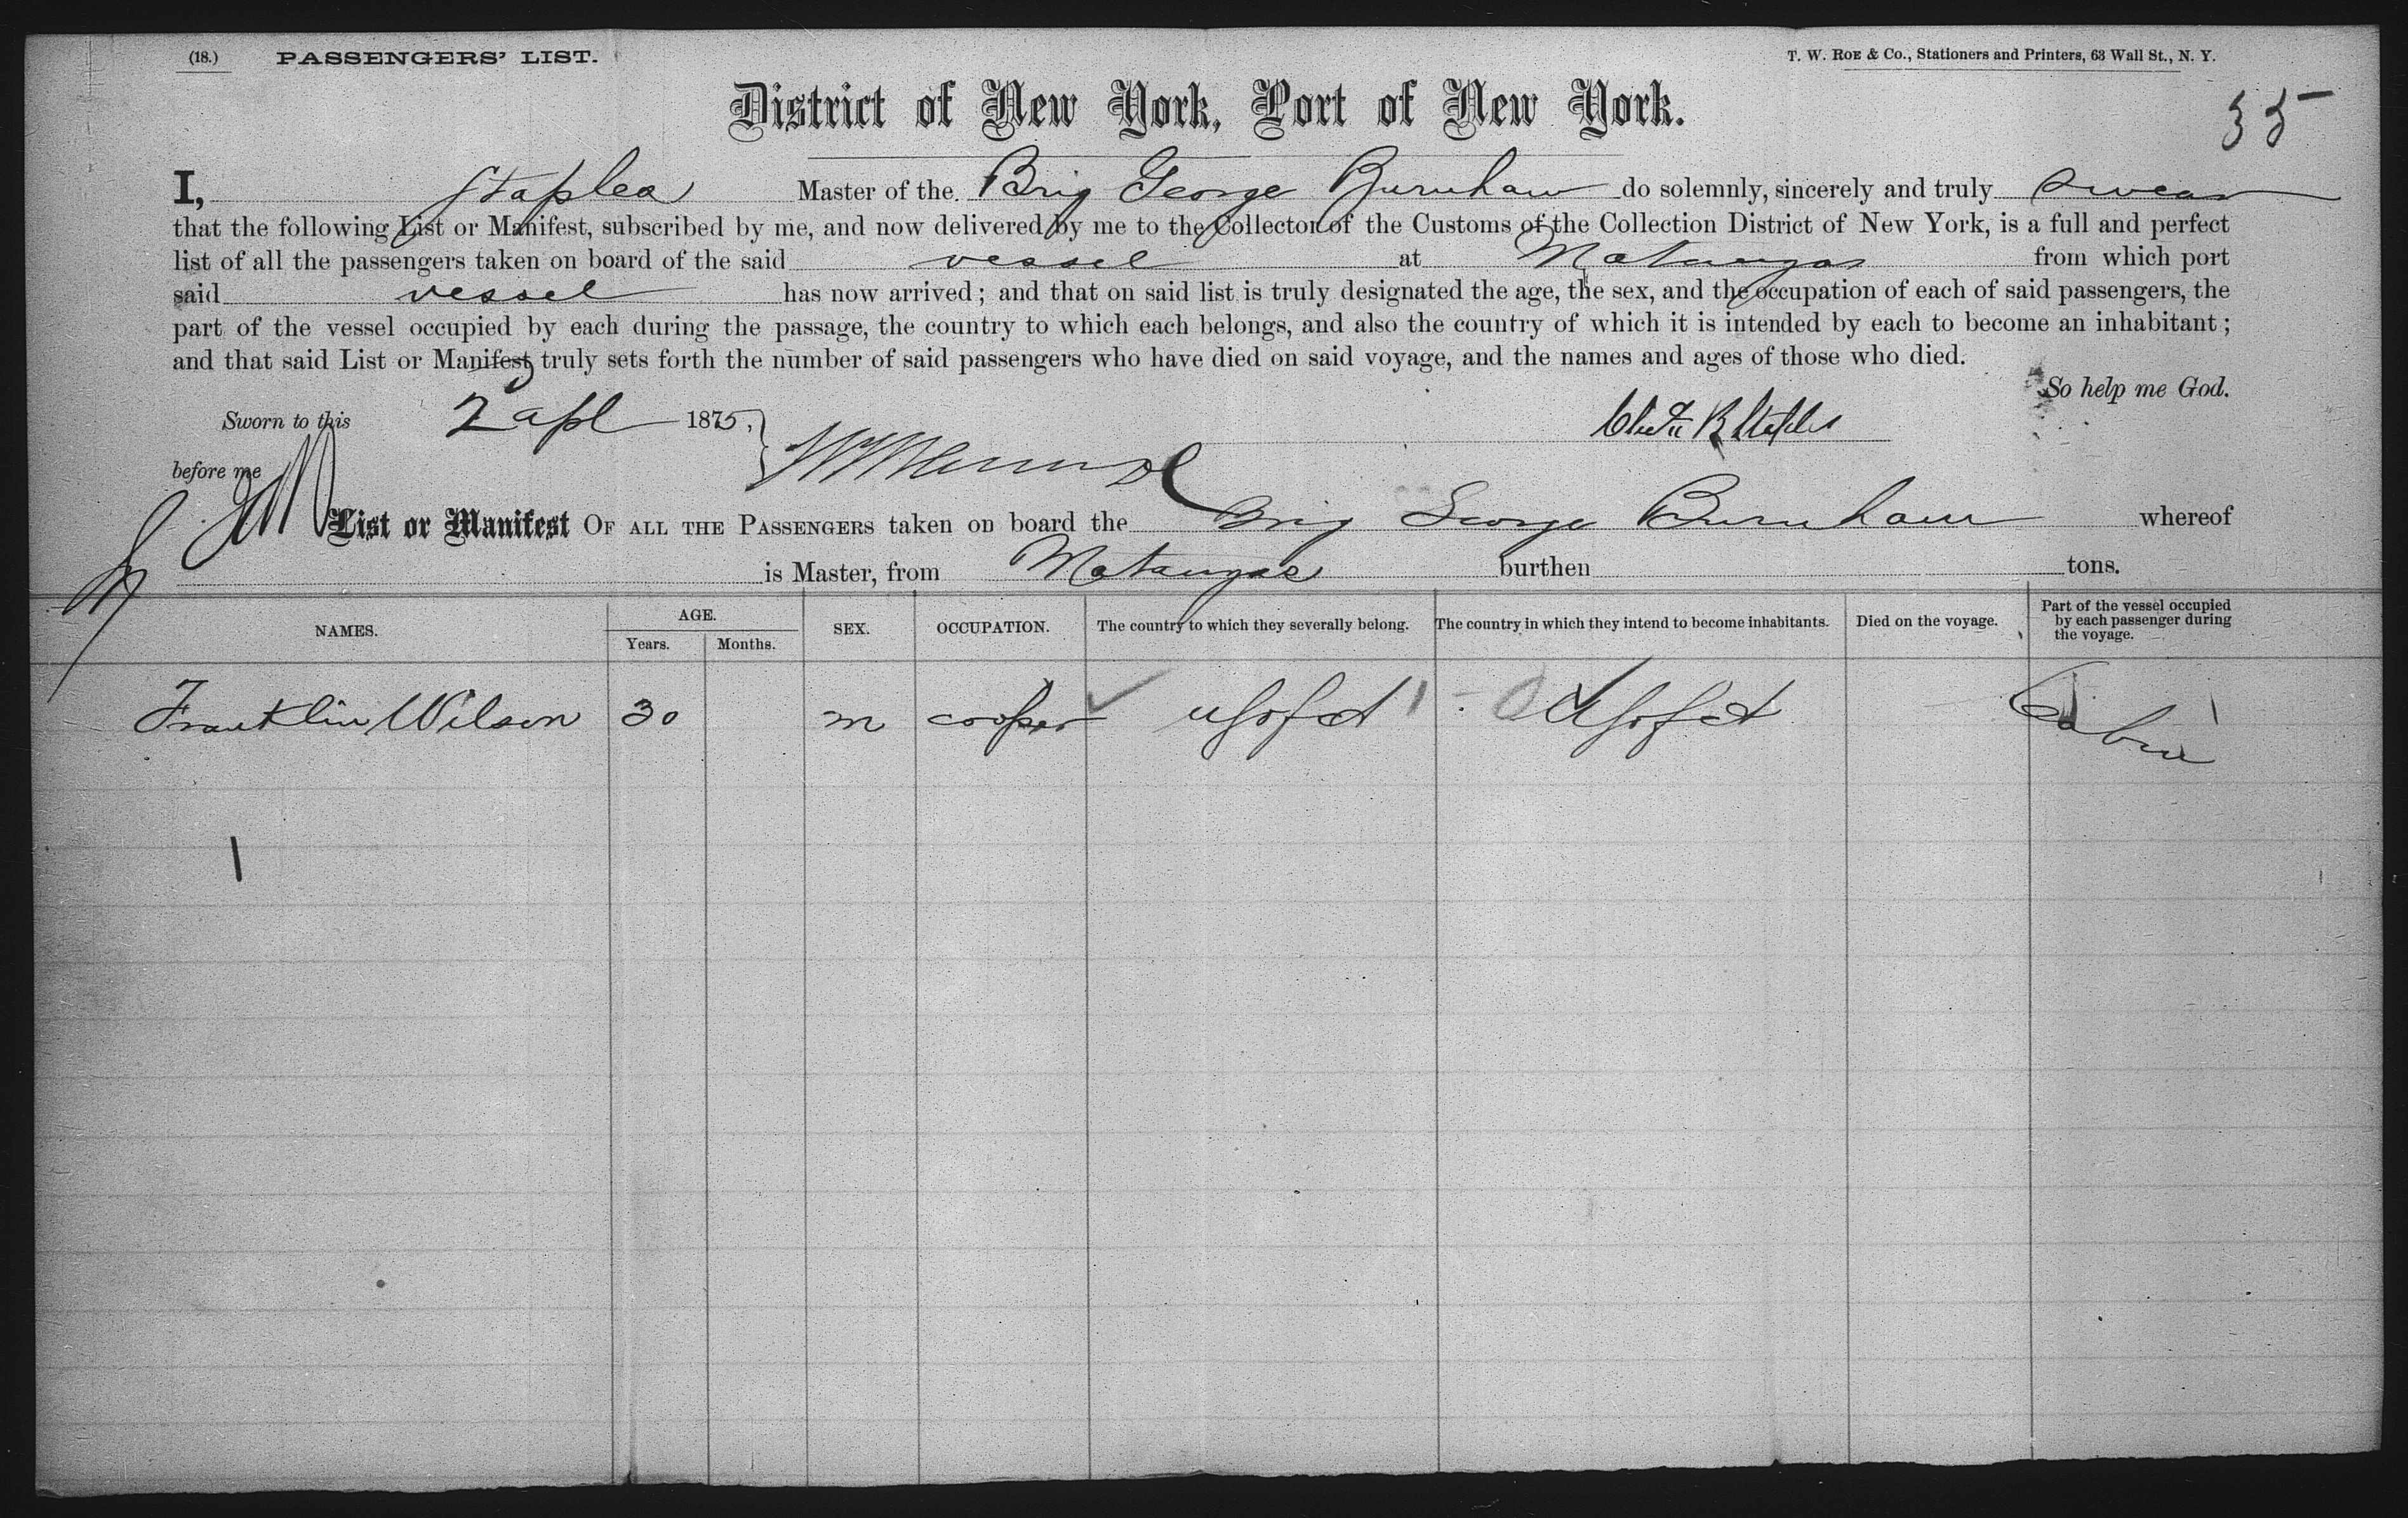 (18.) PASSENGERS' LIST. T. W. ROE & Co., Stationers and Printers, 63 Wall St., N. Y.
District of New York, Port of New York.
I, Staples Master of the Brig George Burnham do solemnly, sincerely and truly swear
that the following List or Manifest, subscribed by me, and now delivered by me to the Collector of the Customs of the Collection District of New York, is a full and perfect
list of all the passengers taken on board of the said vessel at Matanzas from which port
said vessel has now arrived; and that on said list is truly designated the age, the sex, and the occupation of each of said passengers, the
part of the vessel occupied by each during the passage, the country to which each belongs, and also the country of which it is intended by each to become an inhabitant;
and that said List or Manifest truly sets forth the number of said passengers who have died on said voyage, and the names and ages of those who died.
So help me God.
Sworn to this 2 apl 1875,
R Staples
before me
List or Manifest OF ALL THE PASSENGERS taken on board the Brig George Burnham whereof
is Master, from Matanzas burthen tons.
NAMES. AGE. Years. Months. SEX. OCCUPATION. The country to which they severally belong. The country in which they intend to become inhabitants. Died on the voyage. Part of the vessel occupied by each passenger during the voyage.
Franklin Wilson 30 m cooper Cabin
1